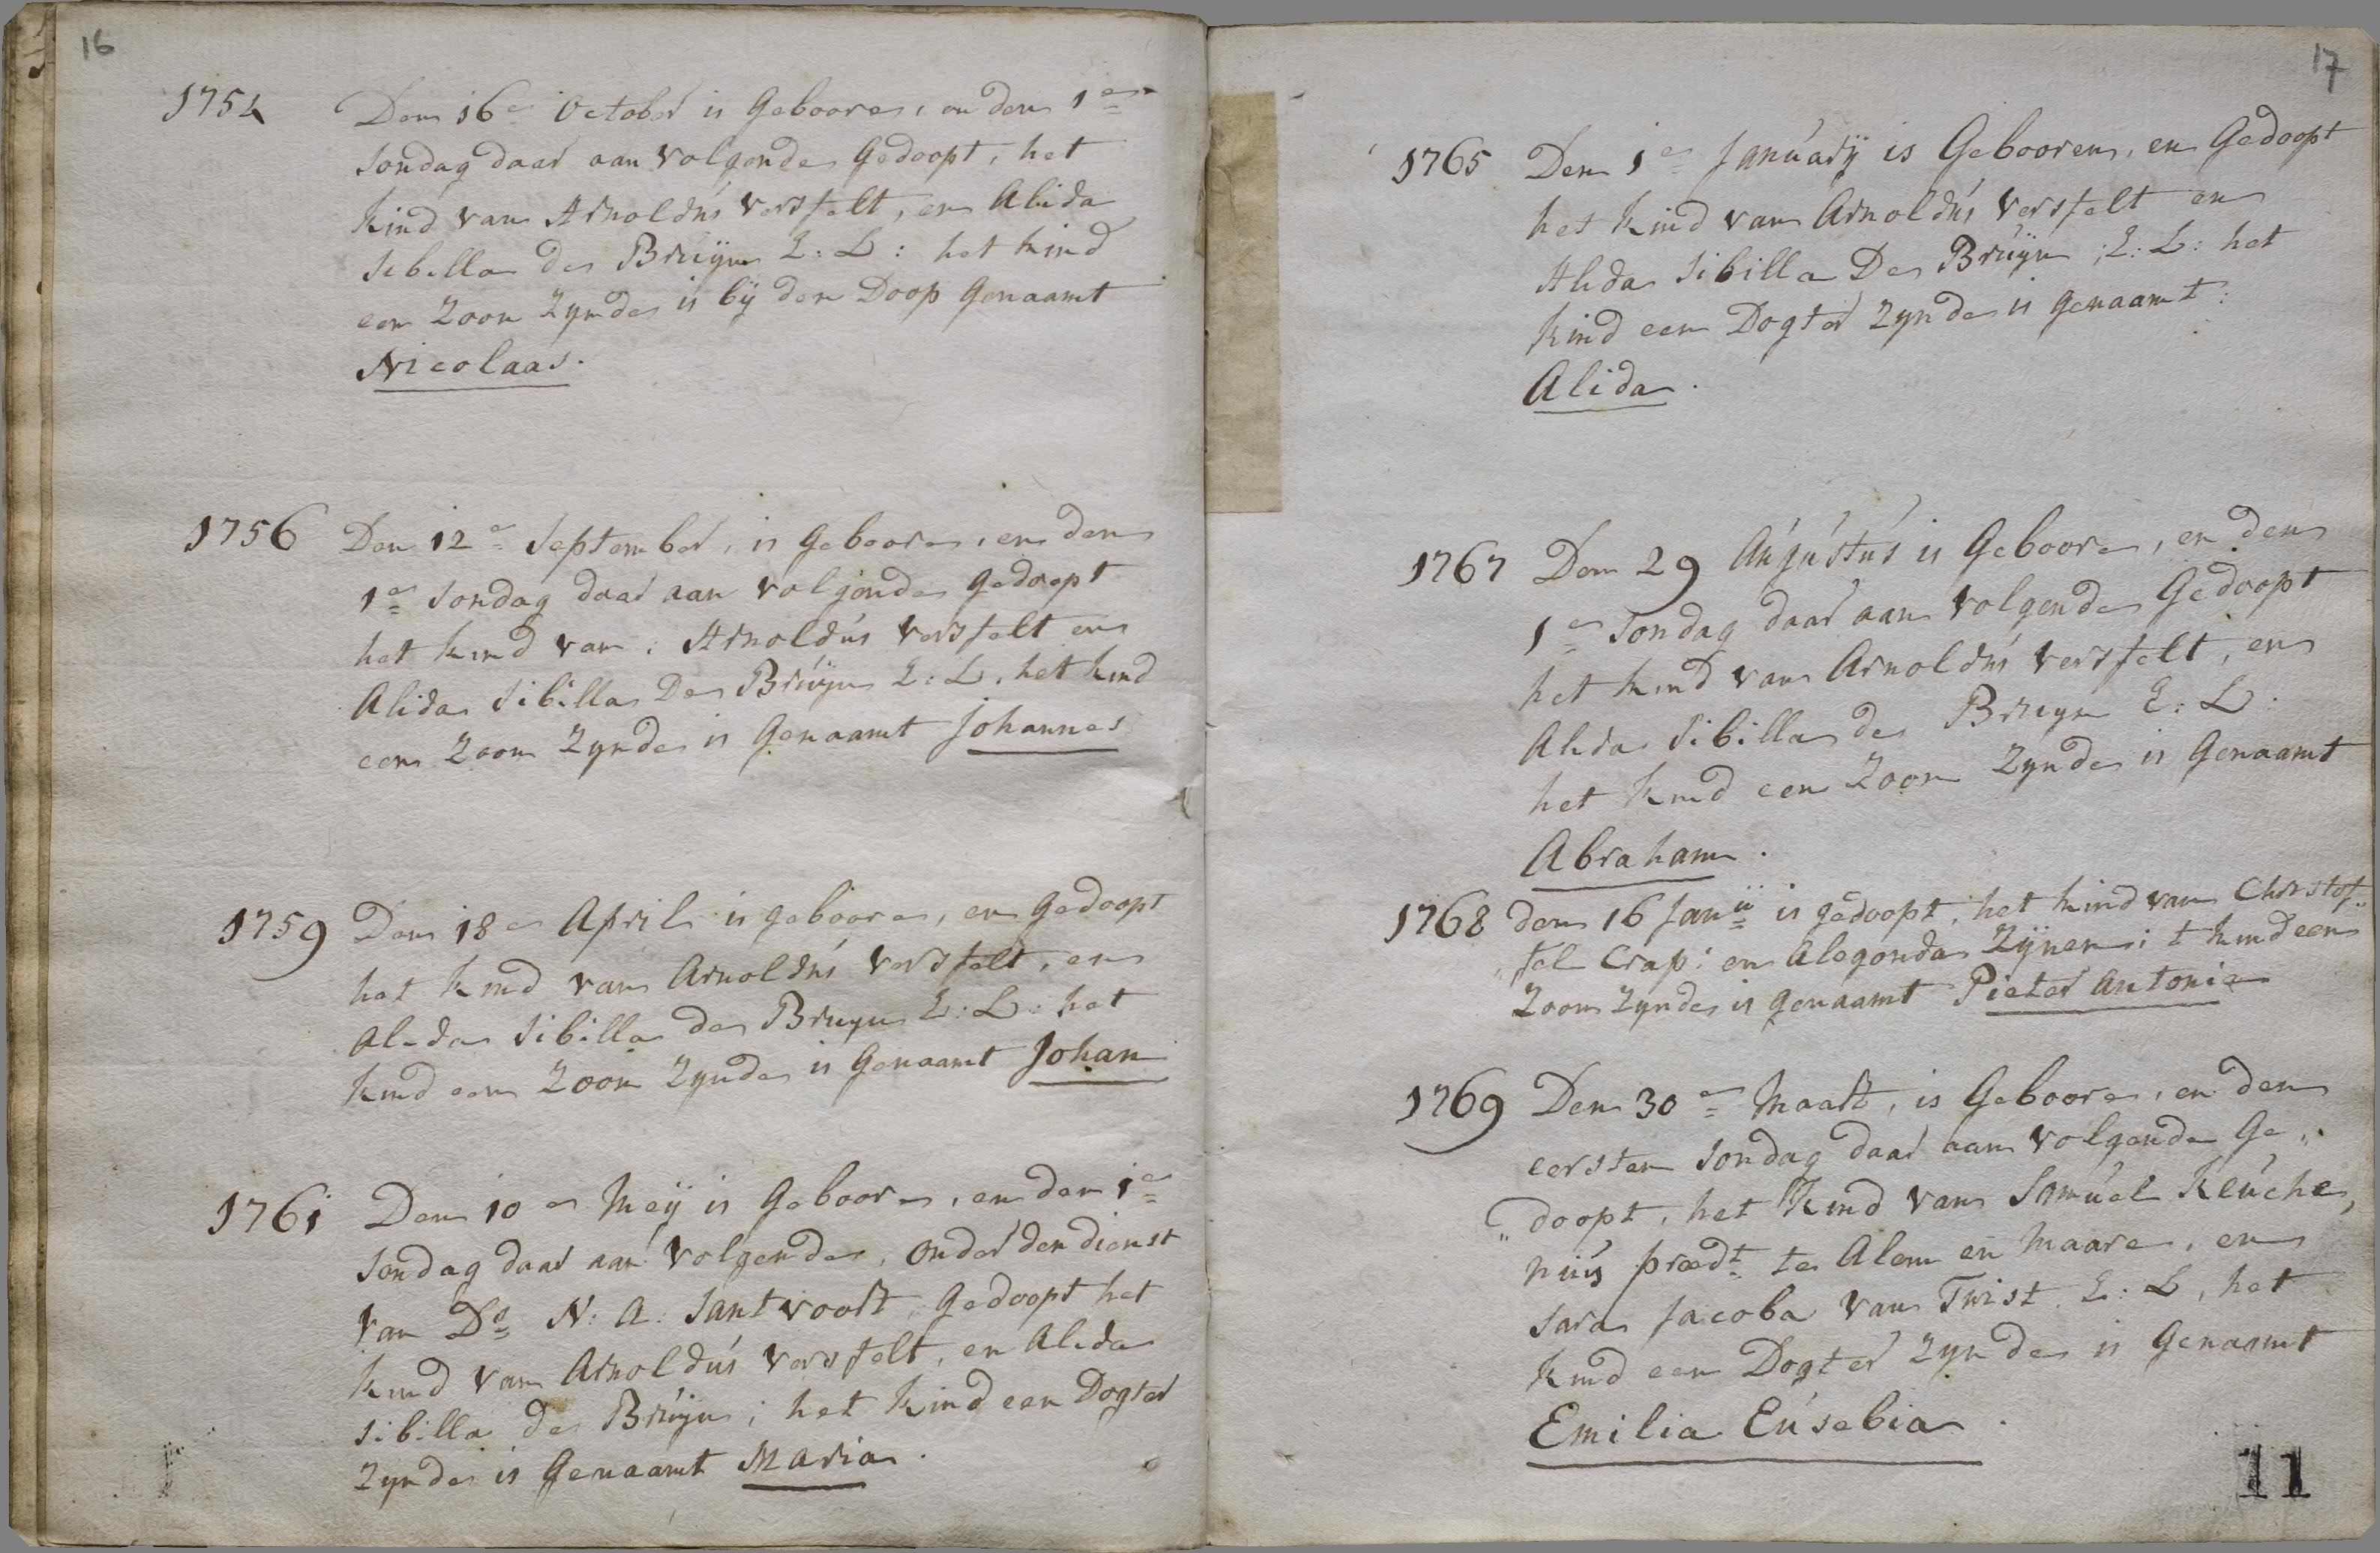 16
1754 Den 16e October is Geboore, en den 1e
Sondag daar aan volgende Gedoopt, het
kind van Arnoldús Versfelt, en Alida
Sibilla de Brúÿn E: L: het kind
een Zoon Zynde is bÿ den Doop Genaamt
Nicolaas.
1756 Den 12e September, is Geboore, en den
1e Sondag daar aan volgende Gedoopt
het kind van: Arnoldús Versfelt en
Alida Sibilla De Brúÿn E: L, het kind
een Zoon Zynde is Genaamt Johannes
1759 Den 18e April is geboore, en Gedoopt
het kind van Arnoldús Versfelt, en
Alida Sibilla de Bruyn E: L: het
kind een Zoon Zynde is Genaamt Johan
1761 Den 10e Meÿ is Geboore, en den 1e
Sondag daar aan volgende, onder den dienst
van Ds N: A: Santvoort, Gedoopt het
kind van Arnoldús Versfelt, en Alida
Sibilla de Brúÿn; het kind een Dogter
Zynde is Genaamt Maria.
17
1765 Den 1e Janúarÿ is Gebooren, en Gedoopt
het kind van Arnoldús Versfelt en
Alida Sibilla De Brúÿn; E: L: het
kind een Dogter Zynde is genaamt:
Alida.
1767 Den 29 Aúgústús is Geboore, en den
1e Sondag daar aan volgende Gedoopt
het kind van Arnoldús Versfelt, en
Alida Sibilla de Bruyn E: L.
het kind een Zoon Zynde is Genaamt
Abraham.
1768 den 16 Janii is gedoopt, het kind van Christof„
„fel Crap: en Alegonda Zÿnen; t kind een
Zoon Zynde is genaamt Pieter Antonie
1769 Den 30e Maart, is Geboore, en den
eersten Sondag daar aan volgende Ge„
„doopt, het Kind van Samúel Keúche,
niús prædt te Alem en Maare, en
Sara Jacoba van Twist E: L, het
kind een Dogter Zynde is Genaamt
Emilia Eúsebia.
11